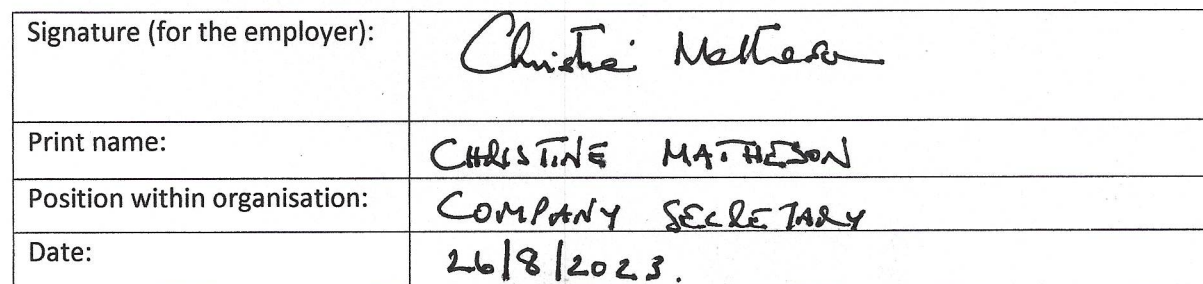 Signature (for the employer): Christine Matheson
Print name: CHRISTINE MATHESON
Position within organisation: COMPANY SECRETARY
Date: 26/8/2023.